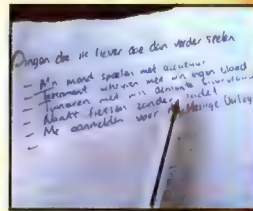 Dingen die ik liever doe dan verder spelen
- M'n mond spoelen met accuzuur
- Testament schrijven met m'n eigen bloed
- Tuinieren met m'n demente
- Naakt fietsen zonder zadel
- Me aanmelden voor
-